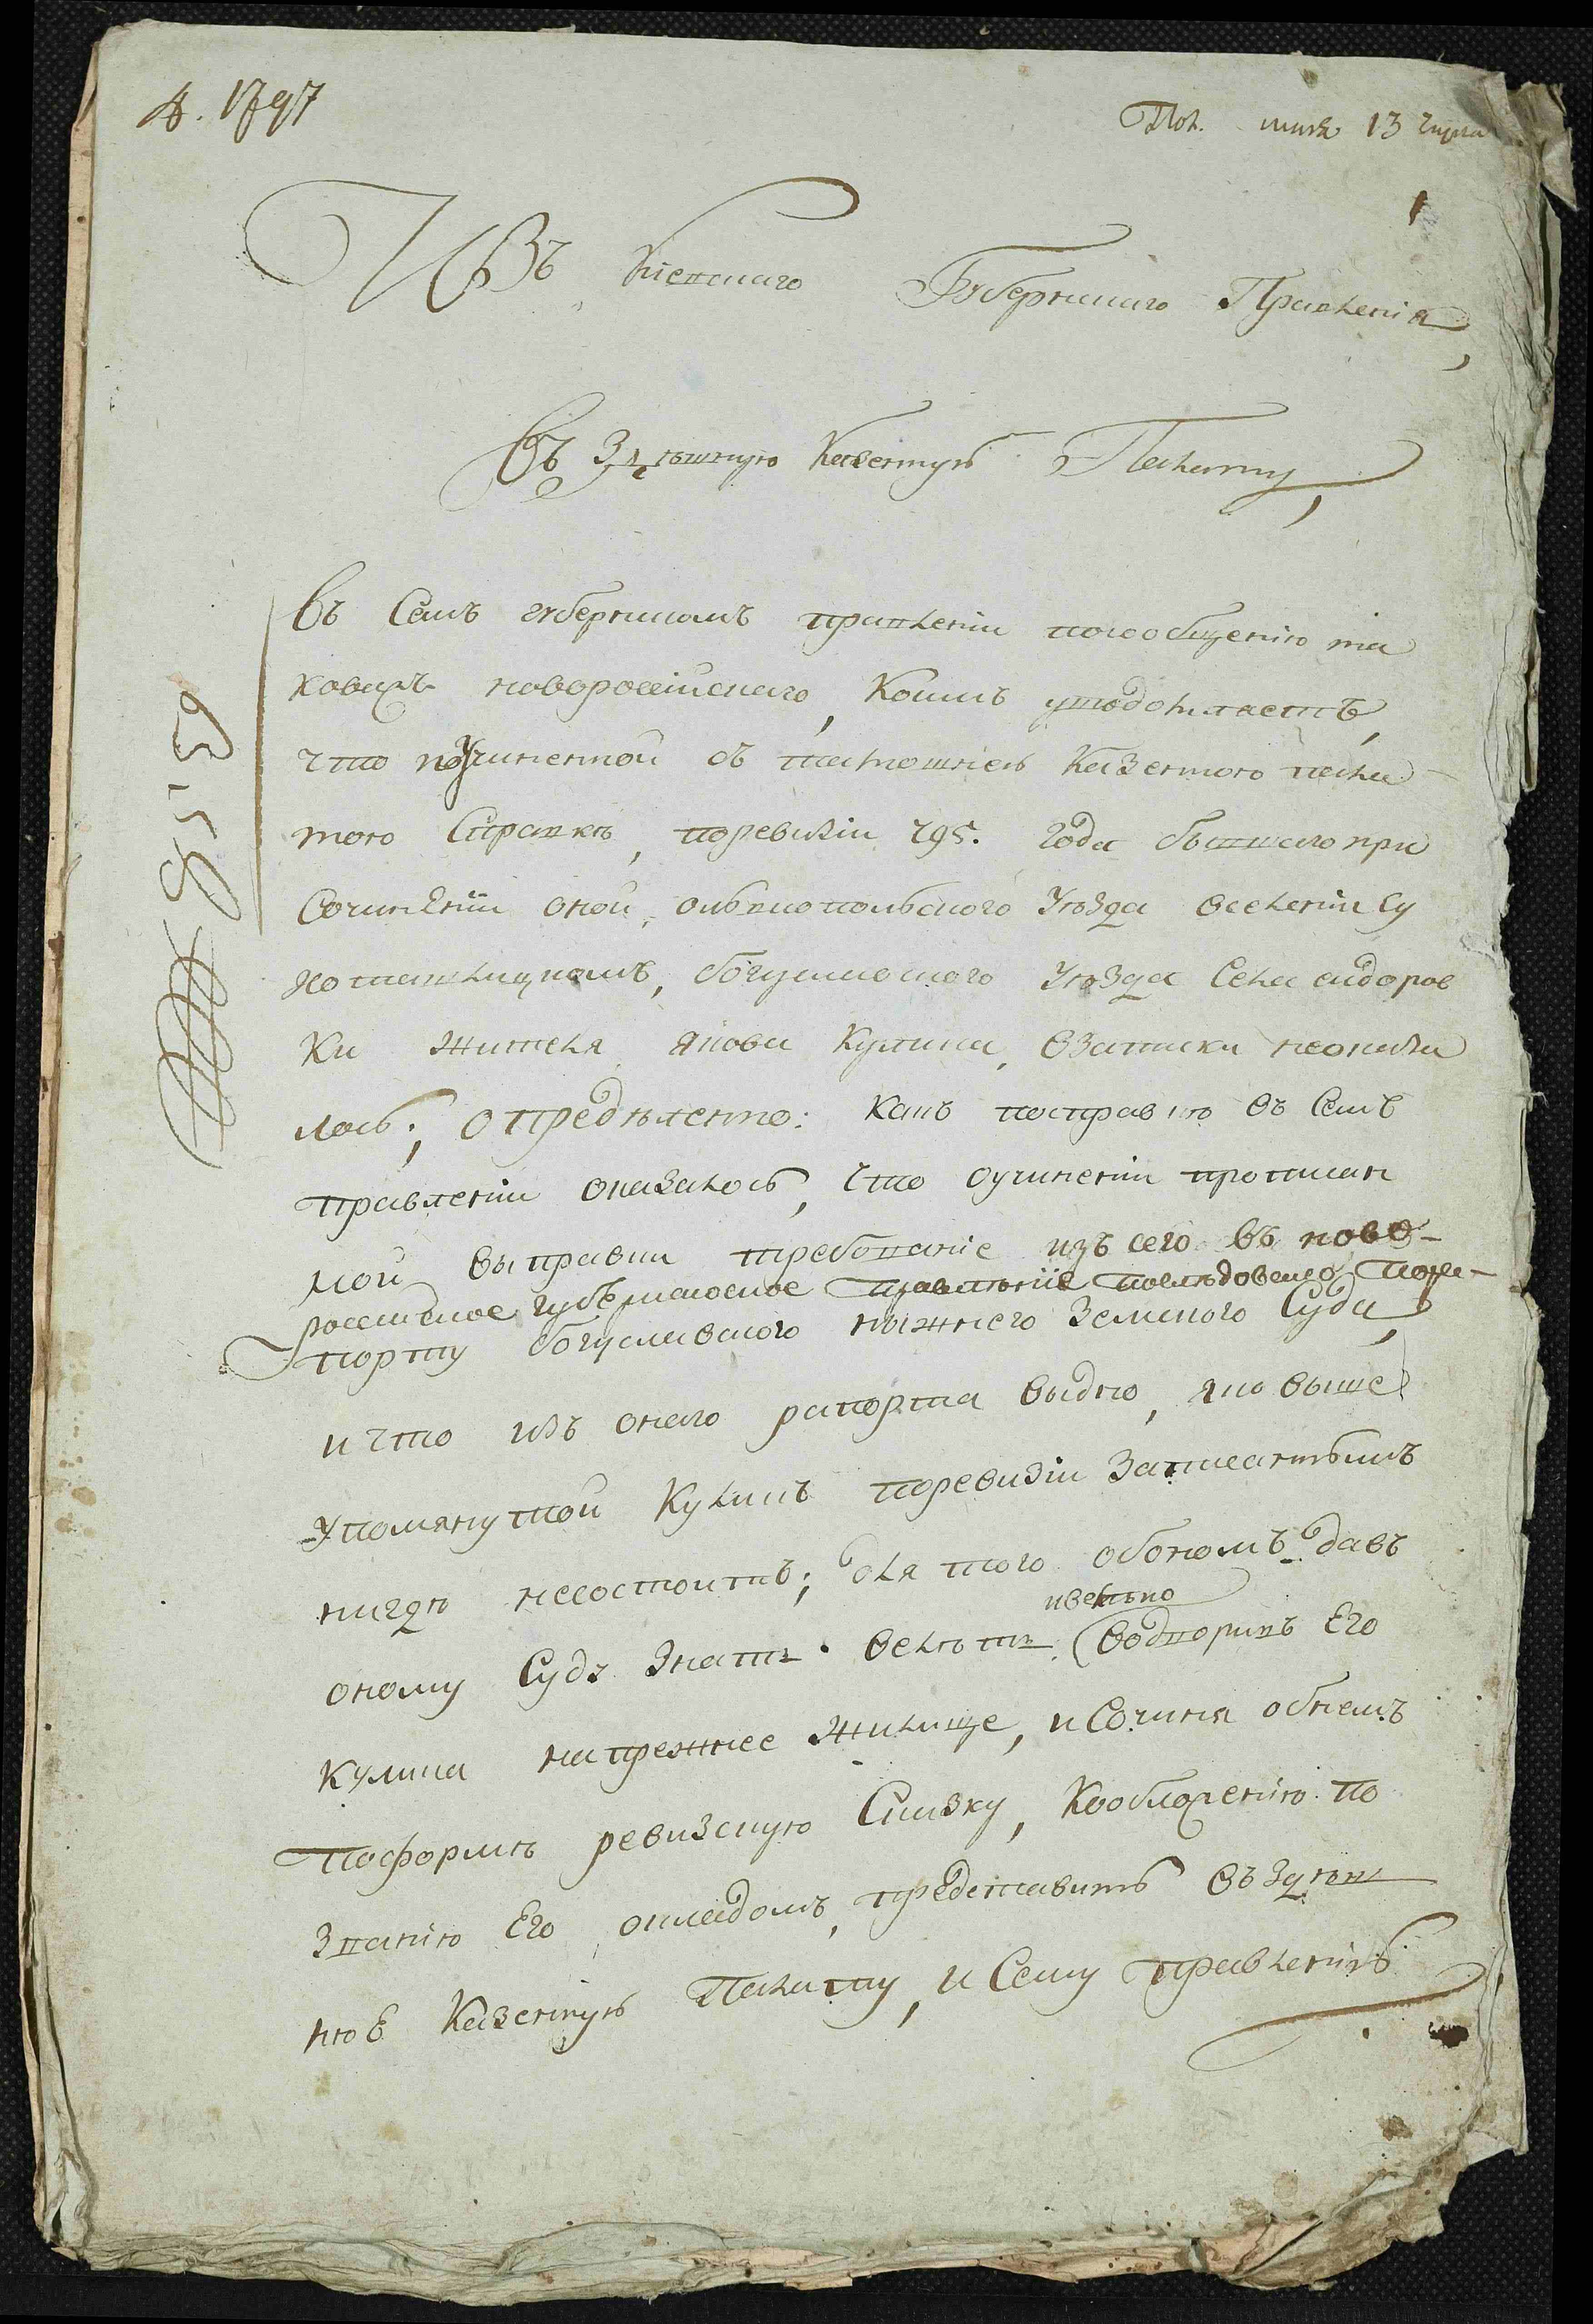 1797
Пол. 13
1
Изъ Кіевскаго Губернскаго Правленія,
Въ Здѣшную Казенную Палату,
Въ Семъ губернскомъ правленіи посообщенію та
ковагожъ новоросійскаго, Коимъ увѣдомляетъ,
что поучиненной въ тамошней Казенного пала
тою Справкѣ, поревизіи 795. Года бывшаго при
Сочиненіи оной, ольвиопольского Уѣзда вселеніи Су
хоташлицкомъ, богуславского Уѣзда Села сидоров
Ки жителя якова Кулика, взаписки неоказа
лось; опредѣленно: какъ посправкѣ въ Семъ
правленіи оказалось, что оучиненіи прописан
ной выправки требованіе изъ сего въ ново-
россійское губернское правленіе послѣдовало пора-
порту богуславского нижнего Земского Суда,
и что изъ онаго рапорта видно, яко выше
упомянутой Куликъ поревизіи Записаннымъ
нигдѣ несостоитъ; для того обономъ давъ
оному Суду знать велѣть водворивъ Его
Кулика напрежнее жилище, и Сочиня обнемъ
поформѣ ревизскую Сказку, Кообложенію по
званію Его окладомъ, представить въ здѣш
нюю Казенную Палату, и Сему правленію